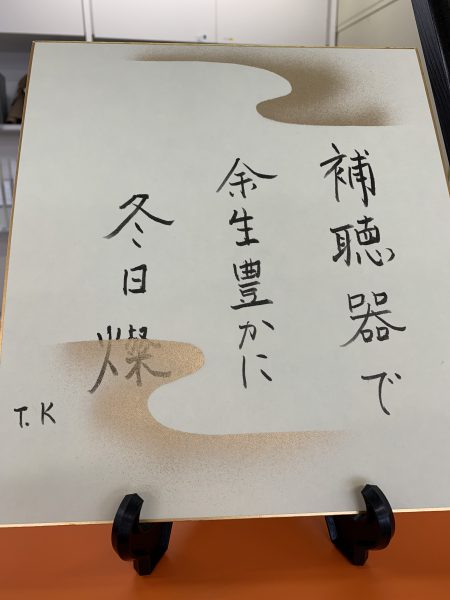 補聴器で
余生豊かに
冬日燦
T.K